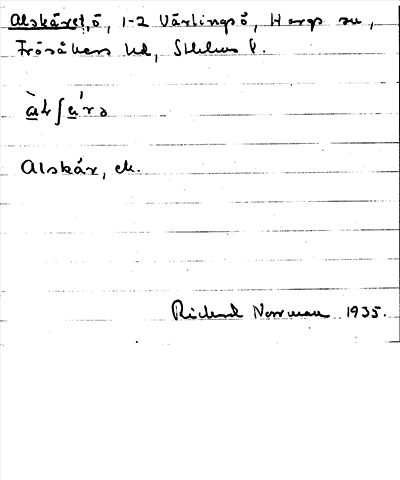 Alskäret, ö, 1-2 Värlingsö, Hargs sn,
Frösåkers hd, Sthlms l.
àlʃá'rə
Alskär, ek.
Richard Norrman 1935.